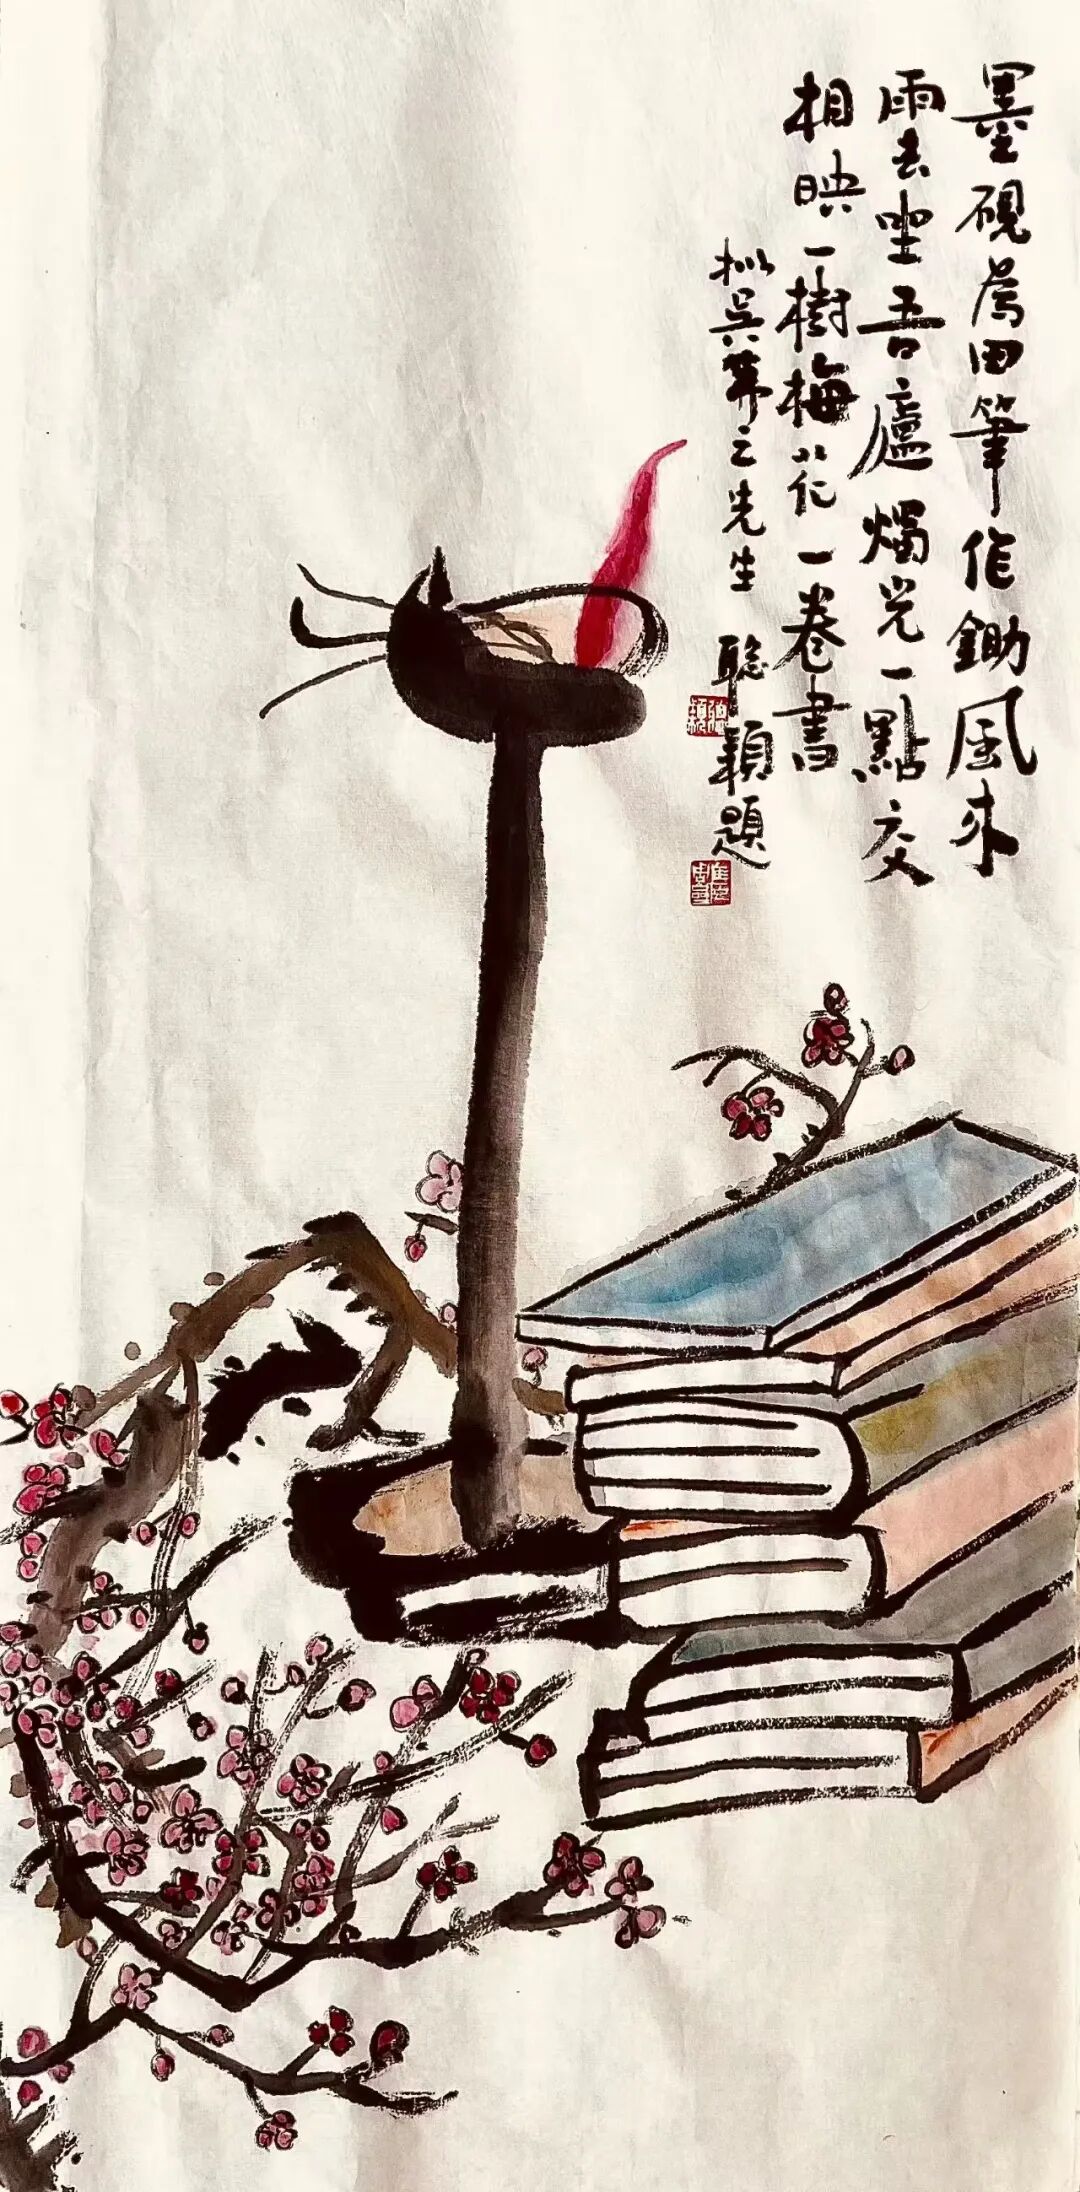 墨硯為田筆作鋤風來
雨去坐吾廬燭光一點交
相映一樹梅花一卷書
拟吴茀之先生 聪穎題